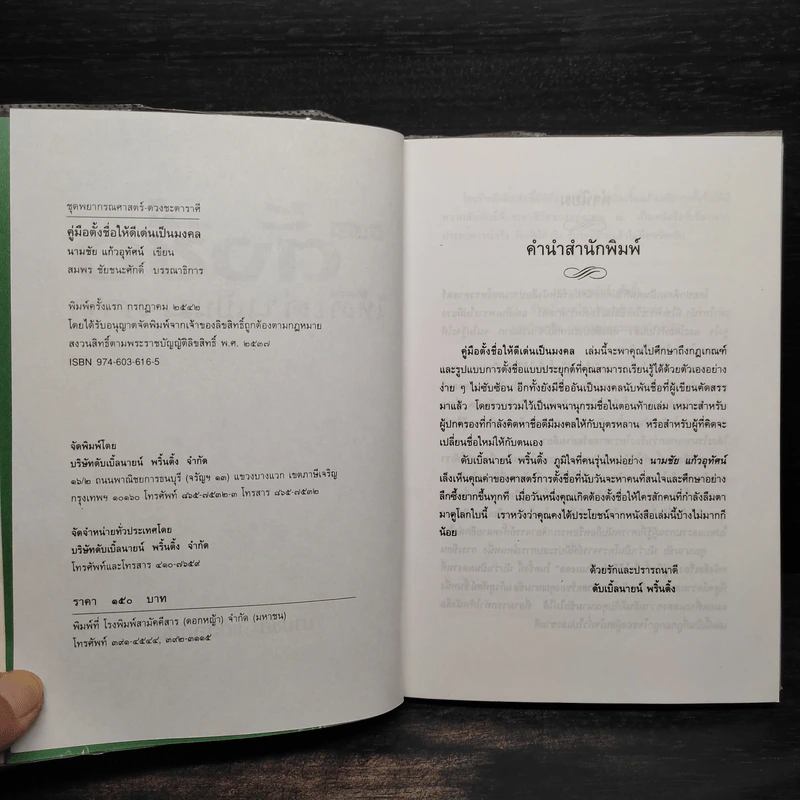 ชุดพยากรณศาสตร์-ดวงชะตาราศี
คู่มือตั้งชื่อให้ดีเด่นเป็นมงคล
นามชัย แก้วอุทัศน์ เขียน
สมพร ชัยชนะศักดิ์ บรรณาธิการ
พิมพ์ครั้งแรก กรกฎาคม ๒๕๔๒
โดยได้รับอนุญาตจัดพิมพ์จากเจ้าของลิขสิทธิ์ถูกต้องตามกฎหมาย
สงวนสิทธิ์ตามพระราชบัญญัติลิขสิทธิ์ พ.ศ. ๒๕๓๗
ISBN 974-603-616-5
จัดพิมพ์โดย
บริษัทดับเบิ้ลนายน์ พริ้นติ้ง จำกัด
๑๖/๒ ถนนพาณิชยการธนบุรี (จรัญฯ ๑๓) แขวงบางแวก เขตภาษีเจริญ
กรุงเทพฯ ๑๐๑๖๐ โทรศัพท์ ๘๖๕-๗๕๓๒-๓ โทรสาร ๘๖๕-๗๕๓๒
จัดจำหน่ายทั่วประเทศโดย
บริษัทดับเบิ้ลนายน์ พริ้นติ้ง จำกัด
โทรศัพท์และโทรสาร ๔๑๐-๗๖๕๙
ราคา ๑๕๐ บาท
พิมพ์ที่ โรงพิมพ์สามัคคีสาร (ดอกหญ้า) จำกัด (มหาชน)
โทรศัพท์ ๓๙๑-๔๕๔๔, ๓๙๒-๓๑๑๕
คำนำสำนักพิมพ์
คู่มือตั้งชื่อให้ดีเด่นเป็นมงคล เล่มนี้จะพาคุณไปศึกษาถึงกฎเกณฑ์
และรูปแบบการตั้งชื่อแบบประยุกต์ที่คุณสามารถเรียนรู้ได้ด้วยตัวเองอย่าง
ง่าย ๆ ไม่ซับซ้อน อีกทั้งยังมีชื่ออันเป็นมงคลนับพันชื่อที่ผู้เขียนคัดสรร
มาแล้ว โดยรวบรวมไว้เป็นพจนานุกรมชื่อในตอนท้ายเล่ม เหมาะสำหรับ
ผู้ปกครองที่กำลังคิดหาชื่อดีมีมงคลให้กับบุตรหลาน หรือสำหรับผู้ที่คิดจะ
เปลี่ยนชื่อใหม่ให้กับตนเอง
ดับเบิ้ลนายน์ พริ้นติ้ง ภูมิใจที่คนรุ่นใหม่อย่าง นามชัย แก้วอุทัศน์
เล็งเห็นคุณค่าของศาสตร์การตั้งชื่อที่นับวันจะหาคนที่สนใจและศึกษาอย่าง
ลึกซึ้งยากขึ้นทุกที เมื่อวันหนึ่งคุณเกิดต้องตั้งชื่อให้ใครสักคนที่กำลังลืมตา
มาดูโลกใบนี้ เราหวังว่าคุณคงได้ประโยชน์จากหนังสือเล่มนี้บ้างไม่มากก็
น้อย
ด้วยรักและปรารถนาดี
ดับเบิ้ลนายน์ พริ้นติ้ง